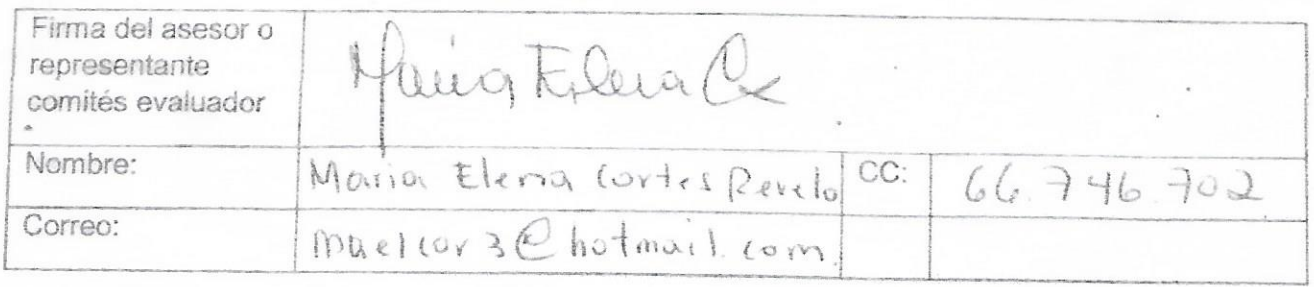 Firma del asesor o
representante
comités evaluador
Maria Elena C
Nombre:
Maria Elena Cortes Revelo
CC:
66.746.702
Correo:
maelcor3@hotmail.com